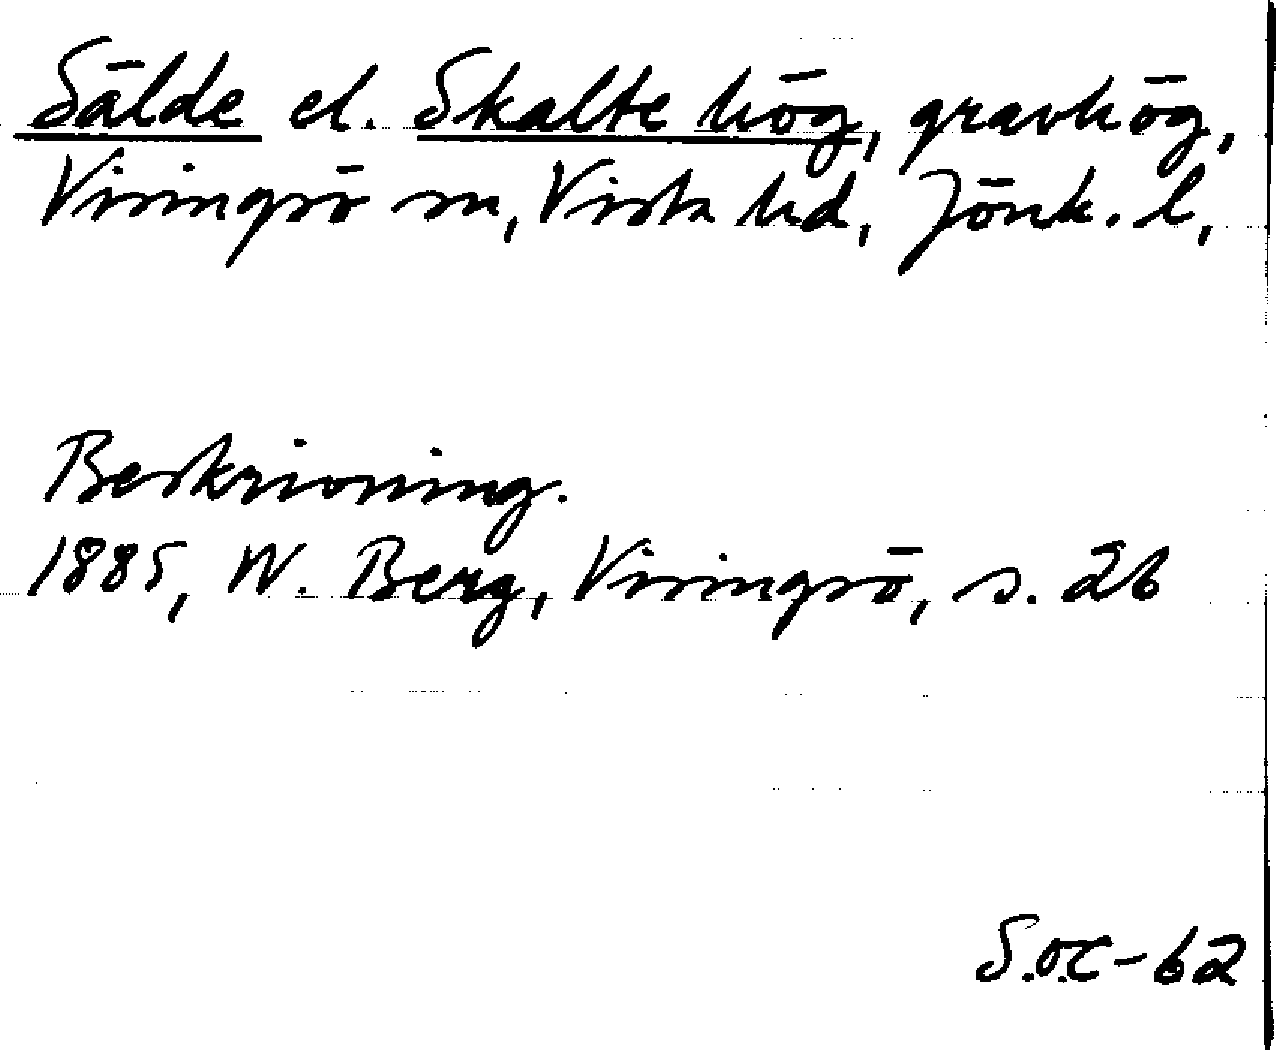 Sälde el. Skalte hög, gravhög,
Visingsö sn, Vista hd, Jönk. l,
Beskrivning.
1885, W. Berg, Visingsö, s. 26
S.O.C-62